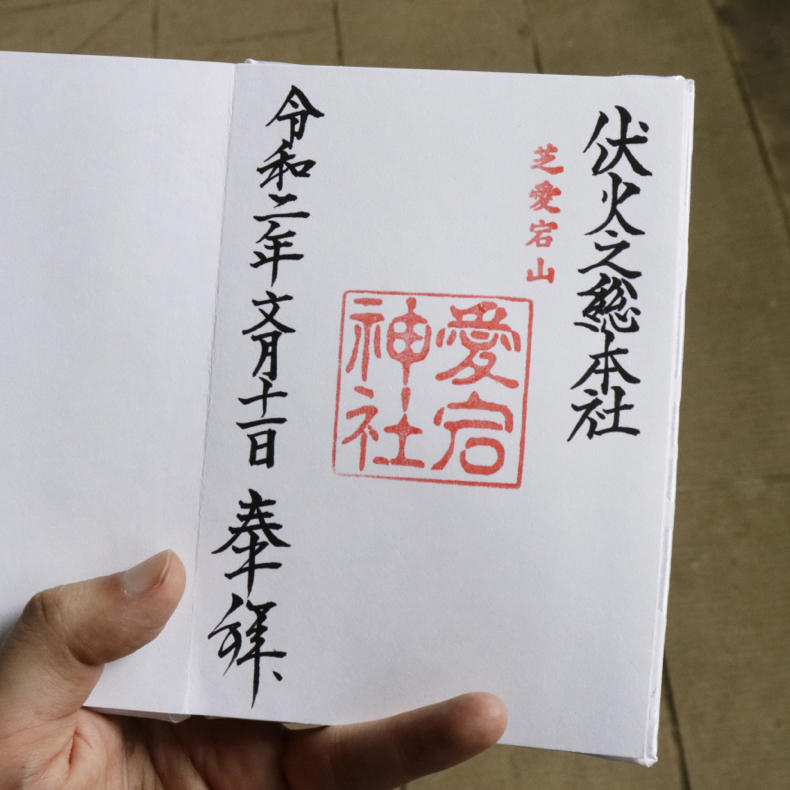 伏火之総本社
芝愛宕山
愛宕
神社
令和二年文月十一日 奉拝